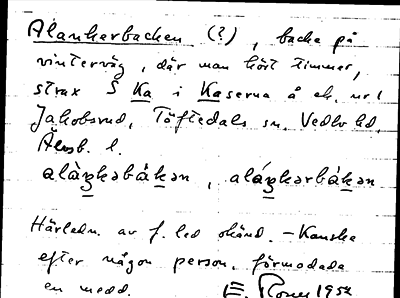 Alankerbacken (?), backe på
vinterväg, där man kört timmer,
strax S Ka i Kaserna å ek. nr 1
Jakobsrud, Töftedals sn, Vedbo hd,
Älvsb. l.
alàŋkəbákən, aláŋkərbákən
Härledn. av f. led okänd. – Kanske
efter någon person, förmodade
en medd.